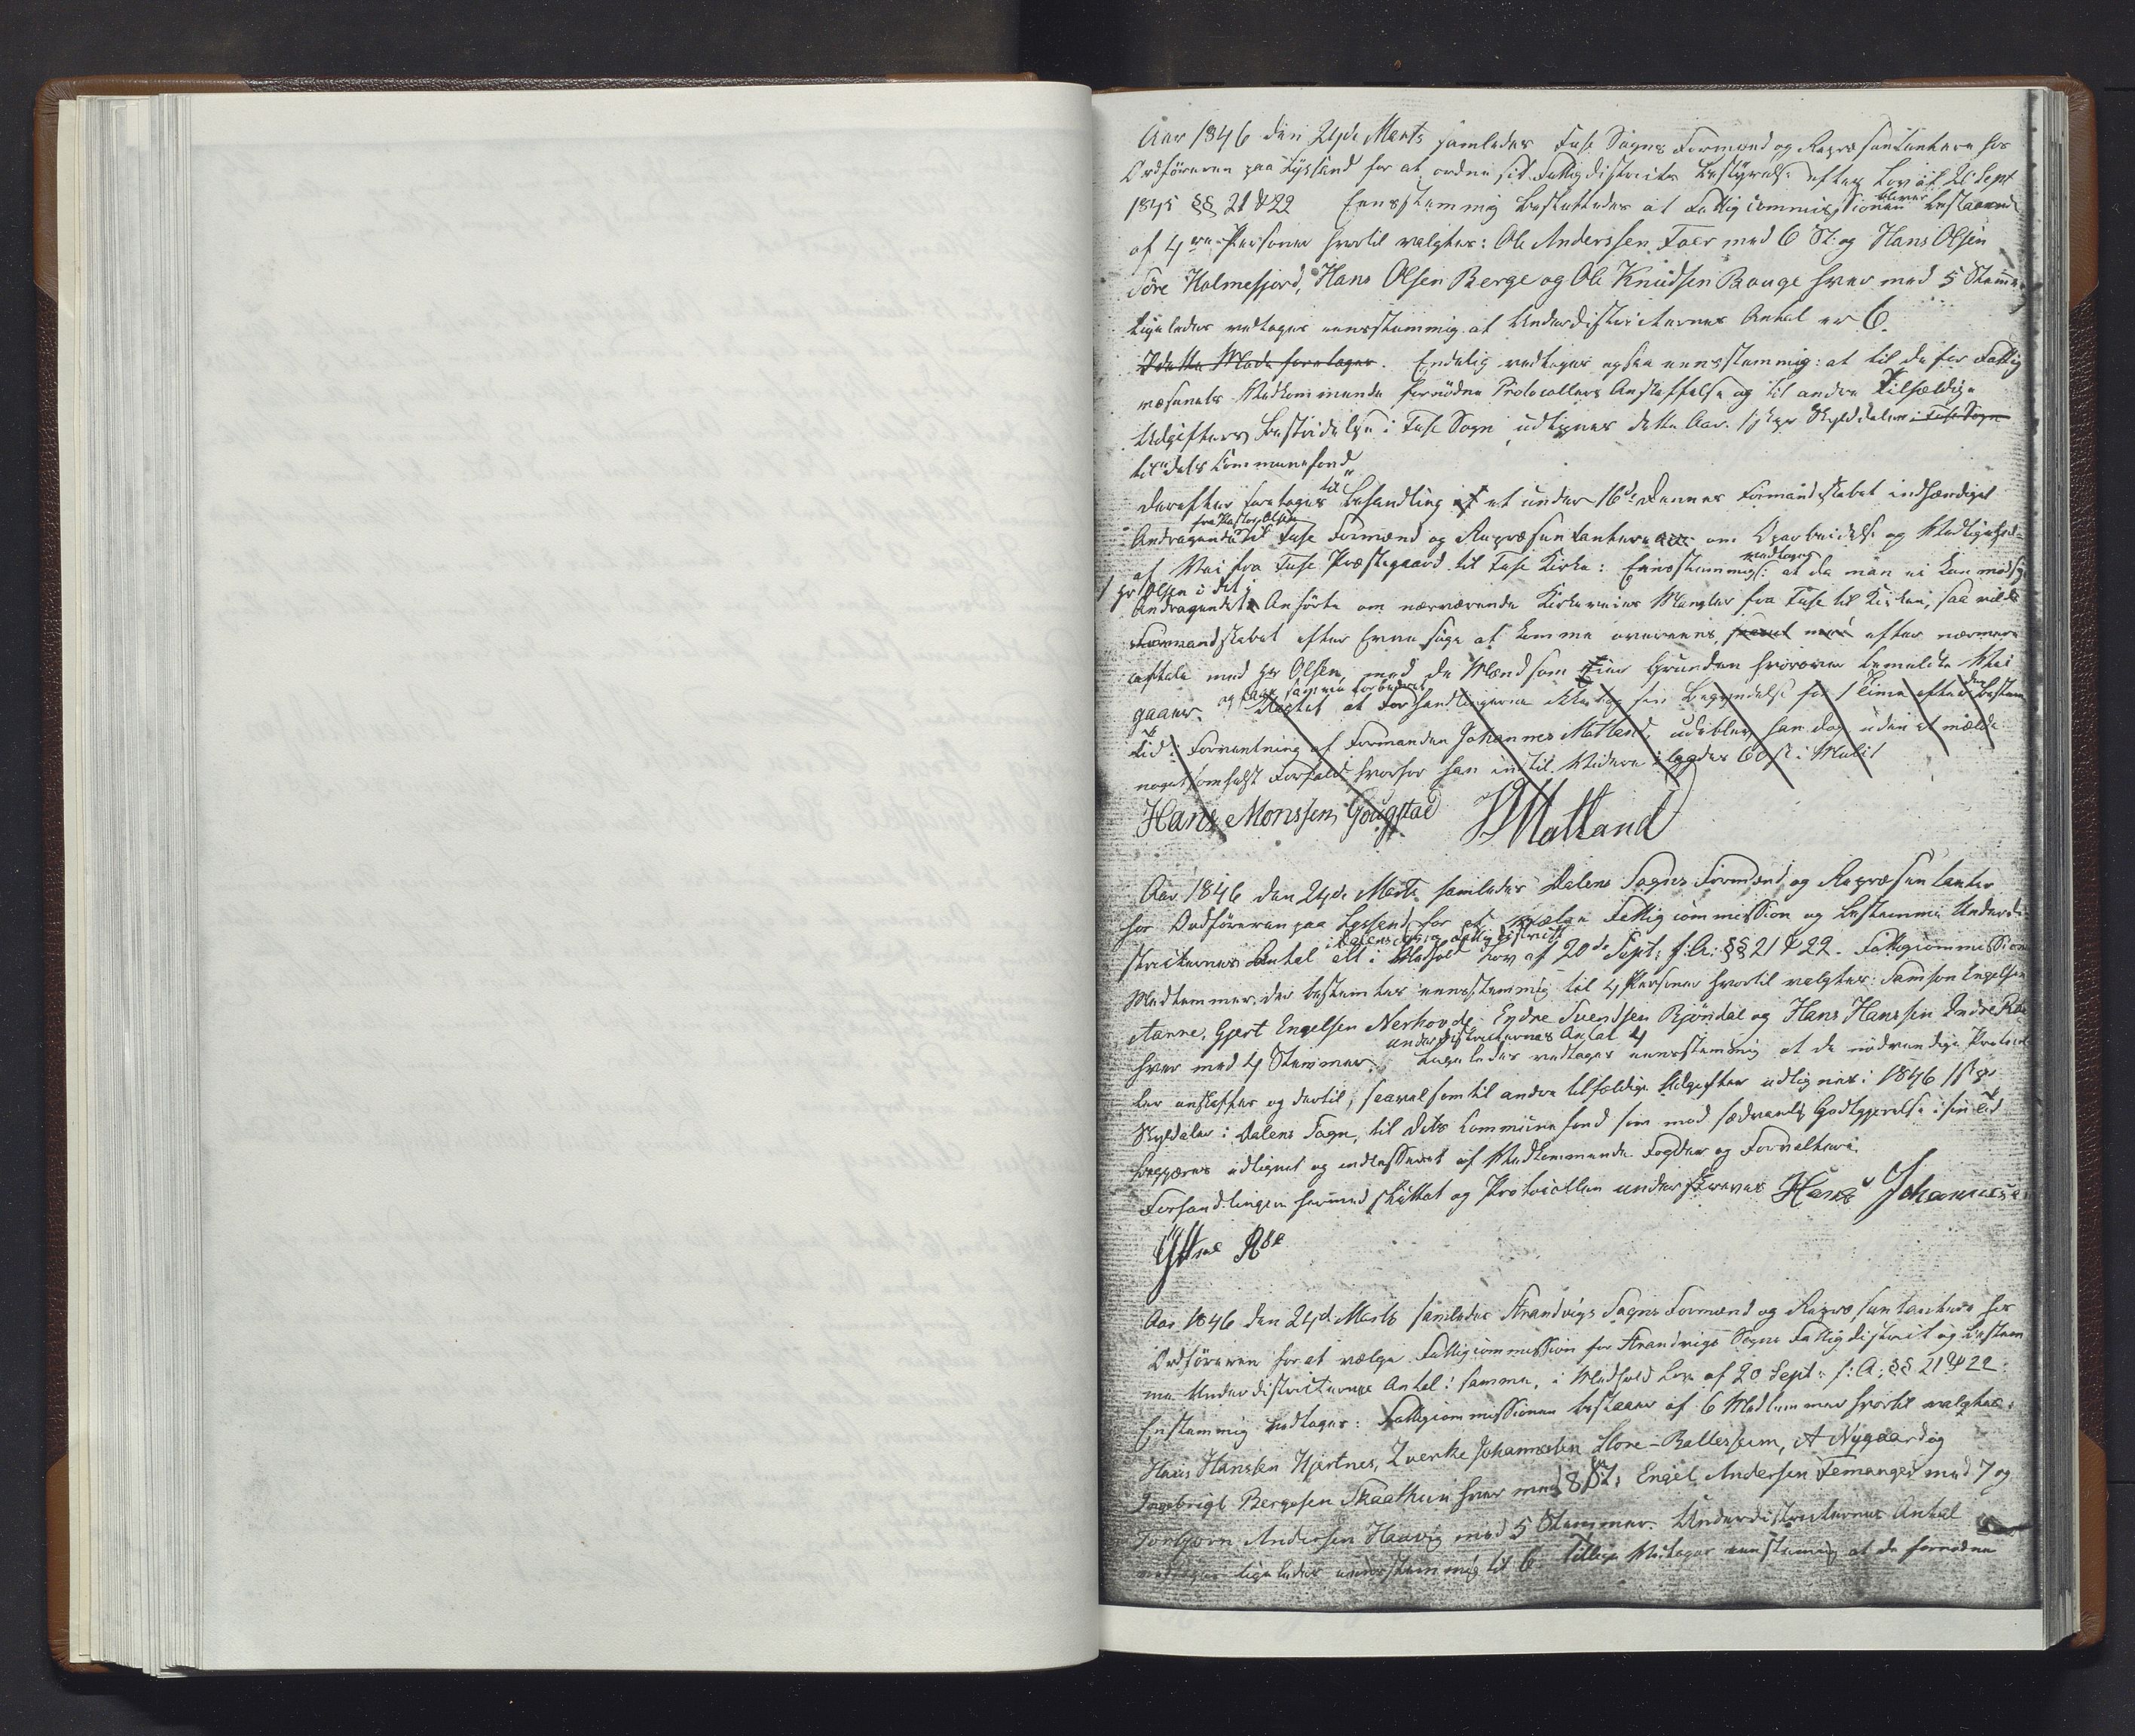 Aar 1846 den 24de Marts samledes Fuse Sogns Formænd og Repræsentantere hos
Ordføreren paa Lygsand for at ordne sit Fattigdistricts Bestyrelse efter Lov af 20 Sept
1845 §§ 21 & 22 Eensstemmig besluttedes at Fattigcommissionen bliver bestaaende
af 4re Personer hvortil valgtes: Ole Anderssen Foer med 6 St: og Hans Olsen
Søre Holmefjord, Hans Olsen Berge og Ole Knudsen Bouge hver med 5 Stemmer
Ligeledes vedtoges eensstemmig at Underdistricternes Antal er 6.
I dette Møde foretoges. Endelig vedtoges ogsaa eensstemmig: at til de for Fattig
væsenets Vedkommende fornødne Protocollers Anskaffelse og til andre tilfældige
Udgifters Bestridelse i Fuse Sogn udlignes dette Aar 1 s pr Skylddaler i Fuse Sogn
til dets Communefond
Derefter foretoges til Behandling et under 16de dennes Formandskabet indhændiget
Andragende fra Pastor Olsen til Fuse Formænd og Repræsentantere om Oparbeidelse og Vedligehold
af Vei fra Fuse Præstegaard til Fuse Kirke: Eensstemmig vedtoges: at da man ei kan modsige
hr Olsen i det i
Andragendet Anførte om nærværende Kirkeveies Mangler fra Fuse til Kirken, saa vilde
Formandskabet efter Evne søge at komme overeens, efter nærmere
aftale med hr Olsen, med de Mænd som Eier Grunden hvorover bemeldte Vei
gaaer. og faae samme forbedret
Uagtet at Forhandlingerne ikke tog sin Begyndelse før 1 Time efter den bestemte
Tid i Forventning af Formanden Johannes Matland, udeblev han dog uden at melde
nogetsomhelst Forfald hvorfor han indtil Videre ilægges 60 s i Mulct
Hans Monssen Gougstad JMatland
Aar 1846 den 24de Marts samledes Dalens Sogns Formænd og Repræsentanter
hos Ordføreren paa Lygsand for at vælge Fattigcommission og bestemme Underdi
stricternes Antal i Dalens Sogns Fattigdistrict alt i Medhold Lov af 20de Sept: f: A: §§ 21 & 22. Fattigcommissionens
Medlemmer bestemtes eensstemmig til 4 Personer hvortil valgtes: Samson Engelsen
Aarre, Gjert Engelsen Nerhovde, Endre Svendsen Bjørndal og Hans Hanssen Indre Røe
hver med 4 Stemmer. Underdistricternes Antal 4 Ligeledes vedtoges eensstemmig at de nødvendige Protocol
ler anskaffes og dertil, saavelsom til andre tilfældige Udgifter udlignes i 1846 1 s pr
Skylddaler i Dalens Sogn, til dets Communefond som mod sædvanlig Godtgjørelse i sin Tid
begjæres udlignet og indcasseret af Vedkommende Fogder og Forvaltere.
Forhandlingen hermed sluttet og Protocollen underskreves Hans Johannessen
Ytre Røe
Aar 1846 den 24de Marts samledes Strandvigs Sogns Formænd og Repræsentantere hos
Ordføreren for at vælge Fattigcommission for Strandvigs Sogns Fattigdistrict og bestem
me Underdistricternes Antal i samme, i Medhold Lov af 20 Sept: f: A: §§ 21 & 22.
Enstemmig vedtoges: Fattigcommissionen bestaaer af 6 Medlemmer hvortil valgtes:
Hans Hanssen Hjertnes, Zverke Johannessen Store-Baldersheim, A Nygaard og
Ingebrigt Bergesen Skaatheim hver med 8 St, Engel Andersen Femanger med 7 og
Torbjørn Andersen Haavig med 5 Stemmer. Underdistricternes Antal
vedtoges ligeledes eensstemmig til 6. Tillige Vedtoges eenstemmig at de fornødne